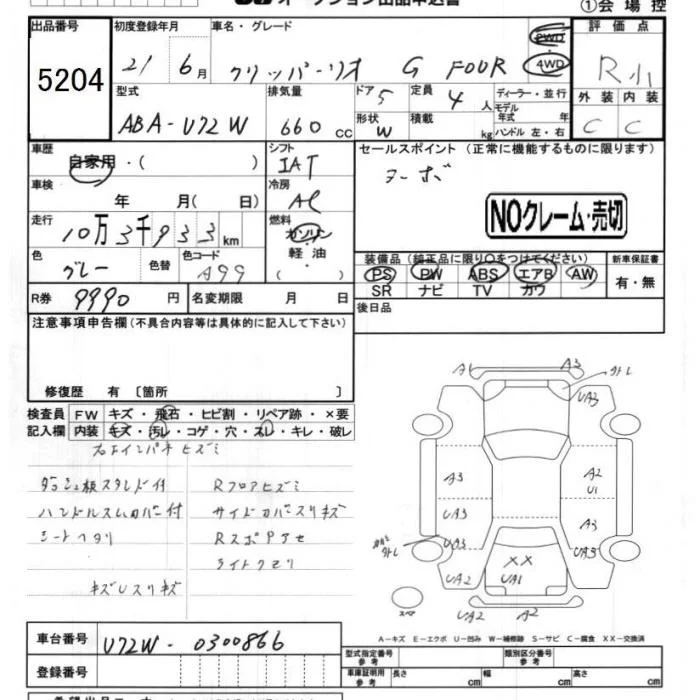 オークション出品申込書 ①会場控
出品番号 初度登録年月 車名・グレード 評価点
5204 21 6月 クリッパーリオ G FOUR 2WD 4WD R小
型式 排気量 ドア 定員 ディーラー・並行 外装 内装
ABA-U72W 660 cc 5 4人 モデル年式 年 C C
形状 積載
W kg ハンドル 左・右
車歴 シフト セールスポイント (正常に機能するものに限ります)
自家用・( ) IAT ターボ
車検 冷房
年 月( 日) AC NOクレーム・売切
走行 燃料
10万3千933km ガソリン
軽油
( )
色 色替 色コード 装備品 (純正品に限り○をつけてください) 新車保証書
グレー A99 PS PW ABS エアB AW 有・無
SR ナビ TV カワ
R券 9990円 名変期限 月 日 後日品
注意事項申告欄 (不具合内容等は具体的に記入して下さい)
修復歴 有 〔箇所 〕
検査員 FW キズ・飛石・ヒビ割・リペア跡・×要
記入欄 内装 キズ・汚レ・コゲ・穴・スレ・キレ・破レ
右Aインパネヒズミ
ダッシュ板スタンド付 Rフロアヒズミ
ハンドルスレカバー付 サイドカバースリキズ
シートヘタリ RスポアアセA
ライトクモリ
キズUスリキズ
A1 A3
UA3
A3 A2
U1
UA3 A3
UA3
UA2 XX UA3
UA1
UA2 A2
スペア
A-キズ E-エクボ U-凹み W-補修跡 S-サビ C-腐食 XX-交換済
車台番号 U72W-0300866
登録番号
型式指定番号 参考 類別区分番号 参考
車庫証明用 参考 長さ cm 幅 cm 高さ cm